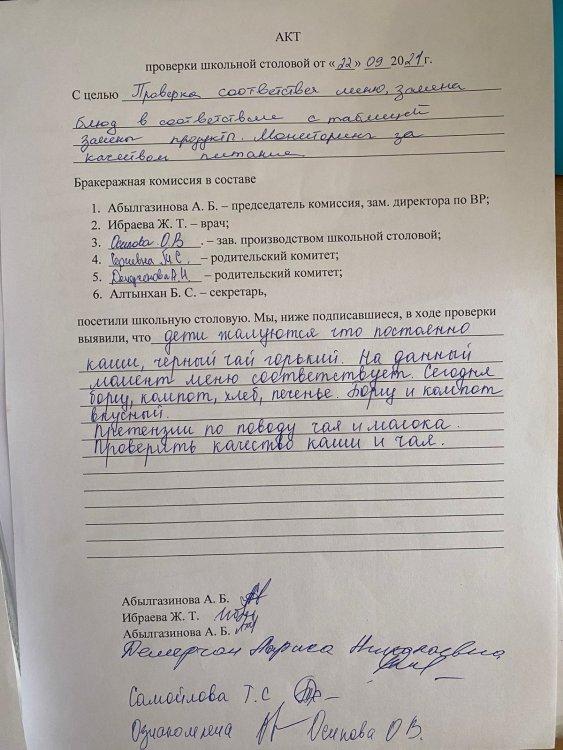 АКТ
проверки школьной столовой от «22» 09 2021 г.
С целью Проверка соответствея меню, замена
блюд в соответствие с таблицей
замены продукты. Мониторинг за
качеством питание
Бракеражная комиссия в составе
1. Абылгазинова А. Б. – председатель комиссия, зам. директора по ВР;
2. Ибраева Ж. Т. – врач;
3. Осипова О.В . – зав. производством школьной столовой;
4. Т.С. – родительский комитет;
5. – родительский комитет;
6. Алтынхан Б. С. – секретарь,
посетили школьную столовую. Мы, ниже подписавшиеся, в ходе проверки
выявили, что дети жалуются что постоянно
каши, черный чай горький. На данный
момент меню соответствует. Сегодня
борщ, компот, хлеб, печенье. Борщ и компот
вкусный.
Претензии по поводу чая и молока.
Проверять качество каши и чая.
Абылгазинова А. Б.
Ибраева Ж. Т.
Абылгазинова А. Б.
Лариса Николаевна
Самойлова Т.С
Ознакомлена Осипова О В.